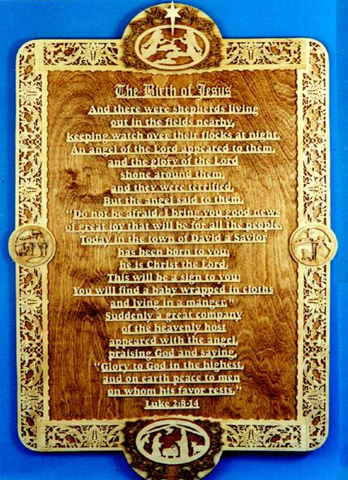 The Birth of Jesus
And there were shepherds living
out in the fields nearby,
keeping watch over their flocks at night.
An angel of the Lord appeared to them,
and the glory of the Lord
shone around them,
and they were terrified.
But the angel said to them,
"Do not be afraid. I bring you good news
of great joy that will be for all the people.
Today in the town of David a Savior
has been born to you;
he is Christ the Lord
This will be a sign to you:
You will find a baby wrapped in cloths
and lying in a manger."
Suddenly a great company
of the heavenly host
appeared with the angel,
praising God and saying,
"Glory to God in the highest,
and on earth peace to men
on whom his favor rests."
Luke 2:8-14